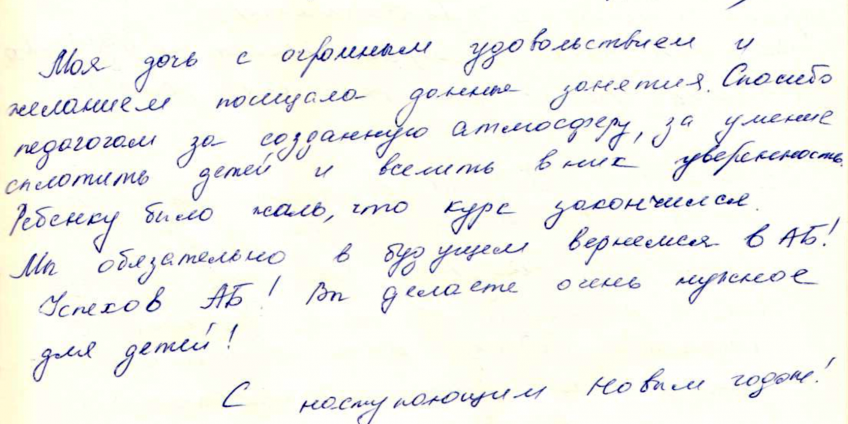 Моя дочь с огромным удовольствием и
желанием посещала данные занятия. Спасибо
педагогам за созданную атмосферу, за умение
сплотить детей и вселить в них уверенность.
Ребенку было жаль, что курс закончился.
Мы обязательно в будущем вернемся в АБ!
Успехов АБ! Вы делаете очень нужное
для детей!
С наступающим Новым годом!